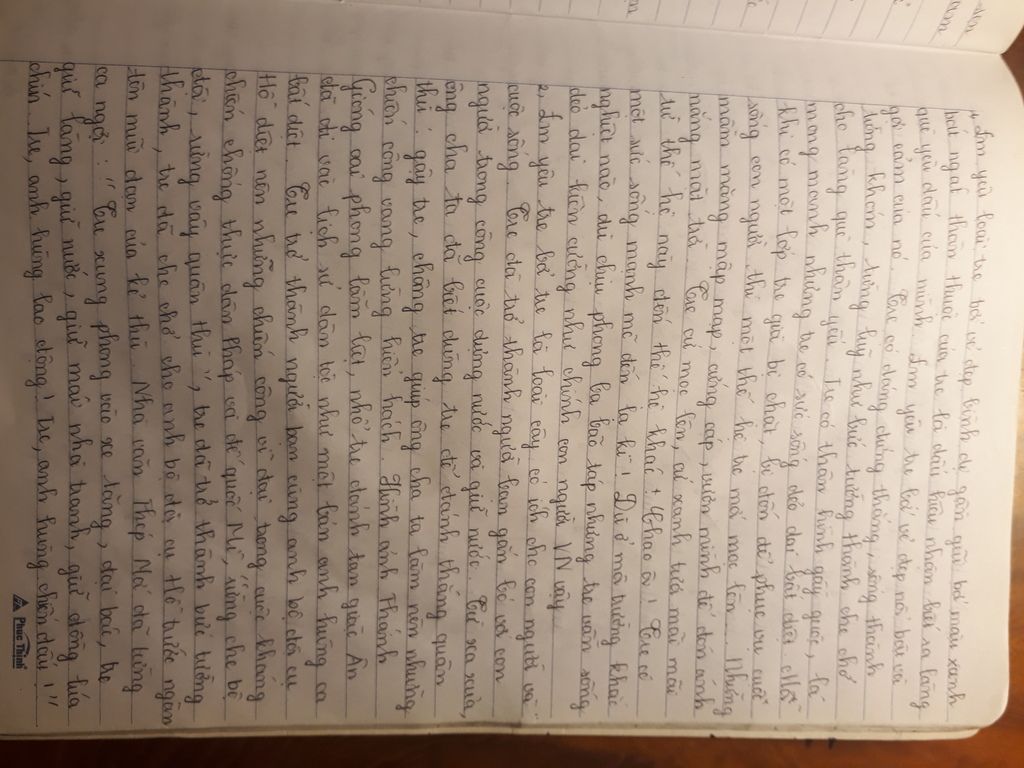 1, Em yêu loài tre bởi vẻ đẹp bình dị gần gũi, bởi màu xanh
bát ngát thân thuộc của tre là dấu hiệu nhận biết xa làng
quê yêu dấu của mình. Em yêu tre bởi vẻ đẹp nó bởi vẻ
gợi cảm của nó. Tre có dáng đứng thẳng, sống thành
từng khóm, từng lũy như bức tường thành che chở
cho làng quê thân yêu. Tre có thân hình gầy guộc, lá
mong manh nhưng tre có sức sống dẻo dai bất diệt. Mỗi
khi có một lớp tre già bị chặt, bị đốn để phục vụ cuộc
sống con người thì một thế hệ tre mới mọc lên... Những
mầm măng mập mạp, cứng cáp, vươn mình để đón ánh
nắng mặt trời. Tre cứ mọc lên, cứ xanh tươi mãi mãi
từ thế hệ này đến thế hệ khác. Chao ôi! Tre có
một sức sống mạnh mẽ đến lạ kì! Dù ở môi trường khắc
nghiệt nào, dù chịu phong ba bão táp nhưng tre vẫn sống
dẻo dai kiên cường như chính con người VN vậy.
2, Em yêu tre bởi tre là loài cây có ích cho con người và
cuộc sống. Tre đã trở thành người bạn gắn bó với con
người trong công cuộc dựng nước và giữ nước. Từ xa xưa,
ông cha ta đã biết dùng tre để đánh thắng quân
thù: gậy tre, chông tre giúp ông cha ta làm nên những
chiến công vang lừng hiển hách. Hình ảnh Thánh
Gióng oai phong lẫm liệt nhổ tre đánh tan giặc Ân
đã đi vào lịch sử dân tộc như một bản anh hùng ca
bất diệt. Tre trở thành người bạn cùng anh bộ đội cụ
Hồ dệt nên những chiến công vĩ đại trong cuộc kháng
chiến chống thực dân Pháp và đế quốc Mĩ, "rừng che bộ
đội, rừng vây quân thù", tre đã trở thành bức tường
thành, tre đã che chở cho anh bộ đội cụ Hồ trước ngàn
tên mũi đạn của kẻ thù. Nhà văn Thép Mới đã từng
ca ngợi: "Tre xung phong vào xe tăng, đại bác, tre
giữ làng, giữ nước, giữ mái nhà tranh, giữ đồng lúa
chín. Tre, anh hùng lao động! Tre, anh hùng chiến đấu!"
Phúc Thịnh